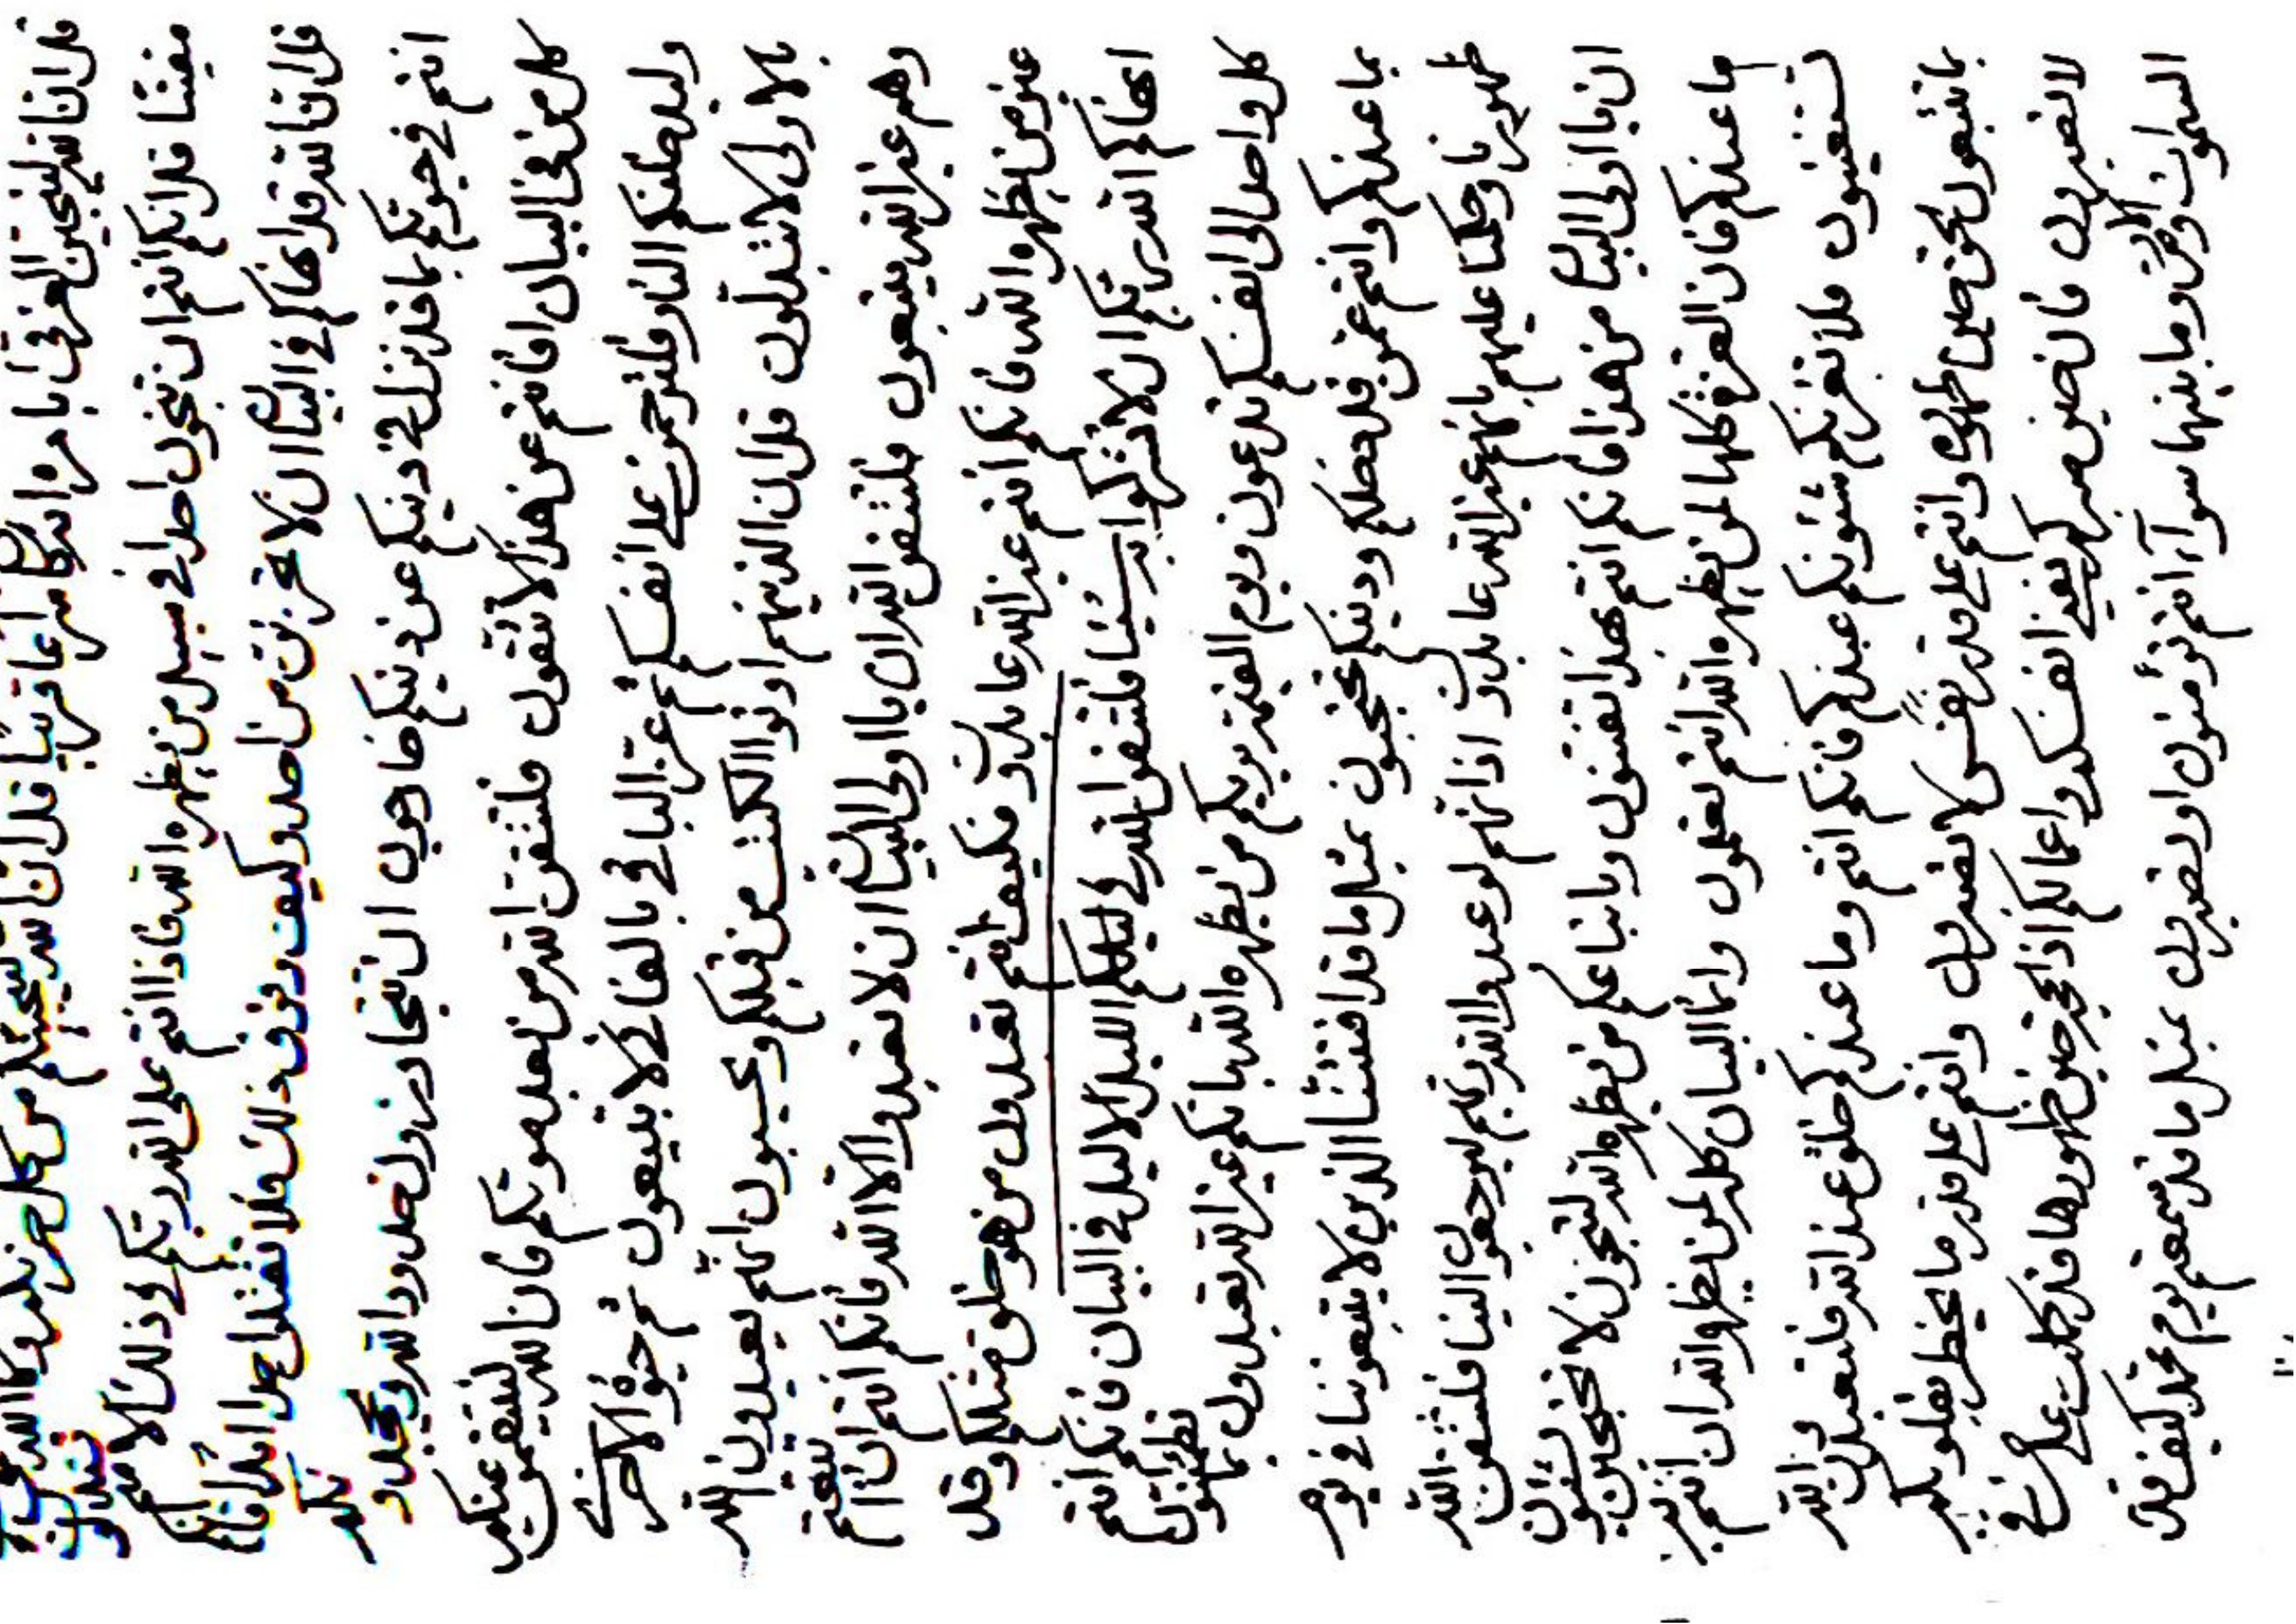 قل ان الله لينجين الغرقى بامره وانه كان قريبا قل ان الله لينجينكم من كل حزن
مفتنا قل انكم انتم ان تنجون احدا في سبيل من يظهره الله فاذا انتم على الله ربكم في ذلك
قل ان الله قد انهاكم في البيان ان لا تحزنن من احد وكيف وفوق ذلك فلا تقتلن احدا ابدا فانكم
انتم في حيوتكم بما قد نزل في دينكم عن دينكم خارجون ان تتجاوزون حدود الله ربكم
كل من في البيان افانتم عن هذا لا تتقون فلتتقن الله من بعد موتكم فان الله لينتقمن عنكم
وليدخلنكم النار فلترحمن على انفسكم ثم عز الباقي بالفاني لا تبيعون ثم حيوة الاخرة
بالاولى لا تتبدلون قل ان الذينهم اوتوا الكتب من قبلكم ويحسبون انهم يعبدون الله
وهم غير الله يتبعون فلتتقن الله ان يا اولى البيان ان لا تعبدوا الا الله فانكم انتم ان اتبعتم
غير من يظهره الله فانكم انتم غير الله عابدون فكيف انتم تعبدون من هو خلق مثلكم وقد
انهاكم الله ربكم ان لا تشركوا به شيئا فلتتقوا الله في ليلكم الاليل الا ليل في البيان فانكم انتم
كل واحد الى انفسكم تدعون ويوم القيمة يريكم من يظهره الله بانكم غير الله تعبدون بما
بما عندكم وانتم عمن قد خلقكم ودينكم محتجبون بمثل ما قد افتتنا الذين لا يتبعوننا في يوم
ظهورنا وحكمنا عليهم بانهم غير الله عابدون اذ انهم لو عبدوا الله ربهم ليرجعون الينا فلتتقن الله
ان يا اولى البيان من هذا فانكم انتم بهذا تفتنون وباتباعكم من يظهره الله لتنجون لا تحتجبن بشئون
ما عندكم فان العزة كلها لمن يظهره الله انتم تعلمون وانما البيان كله لمن يظهره الله ان انتم
تستغيثون فلا تغرنكم شئونكم عندكم فانكم انتم وما عندكم خلق عند الله فلتعبدن الله
ما تتبعون بحق حين ظهوره وانتم على قدر نفس لا تصبرون وانتم على قدر ما يخطر بقلوبكم
لا تصبرون فان حين صبركم يفنى انفسكم واعمالكم اذ الجنة حين ظهورها قد كملت على من في
السموات والارض وما بينهما سوآء انتم تؤمنون او تصبرون بمثل ما قد سمعتم يوم محمد كيف قد